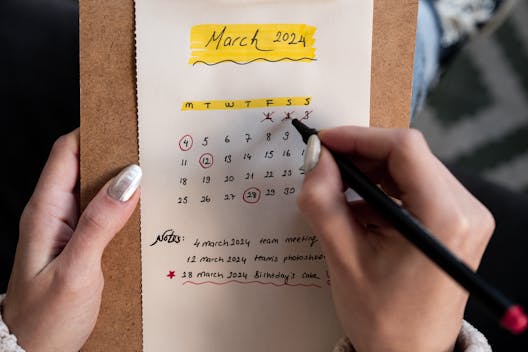 March 2024
M T W T F S S
1 2 3
4 5 6 7 8 9
11 12 13 14 15 16
18 19 20 21 22 23
25 26 27 28 29 30
Notes:
4 march 2024 team meeting
12 march 2024 team's
★ 28 march 2024 Birthday's cake